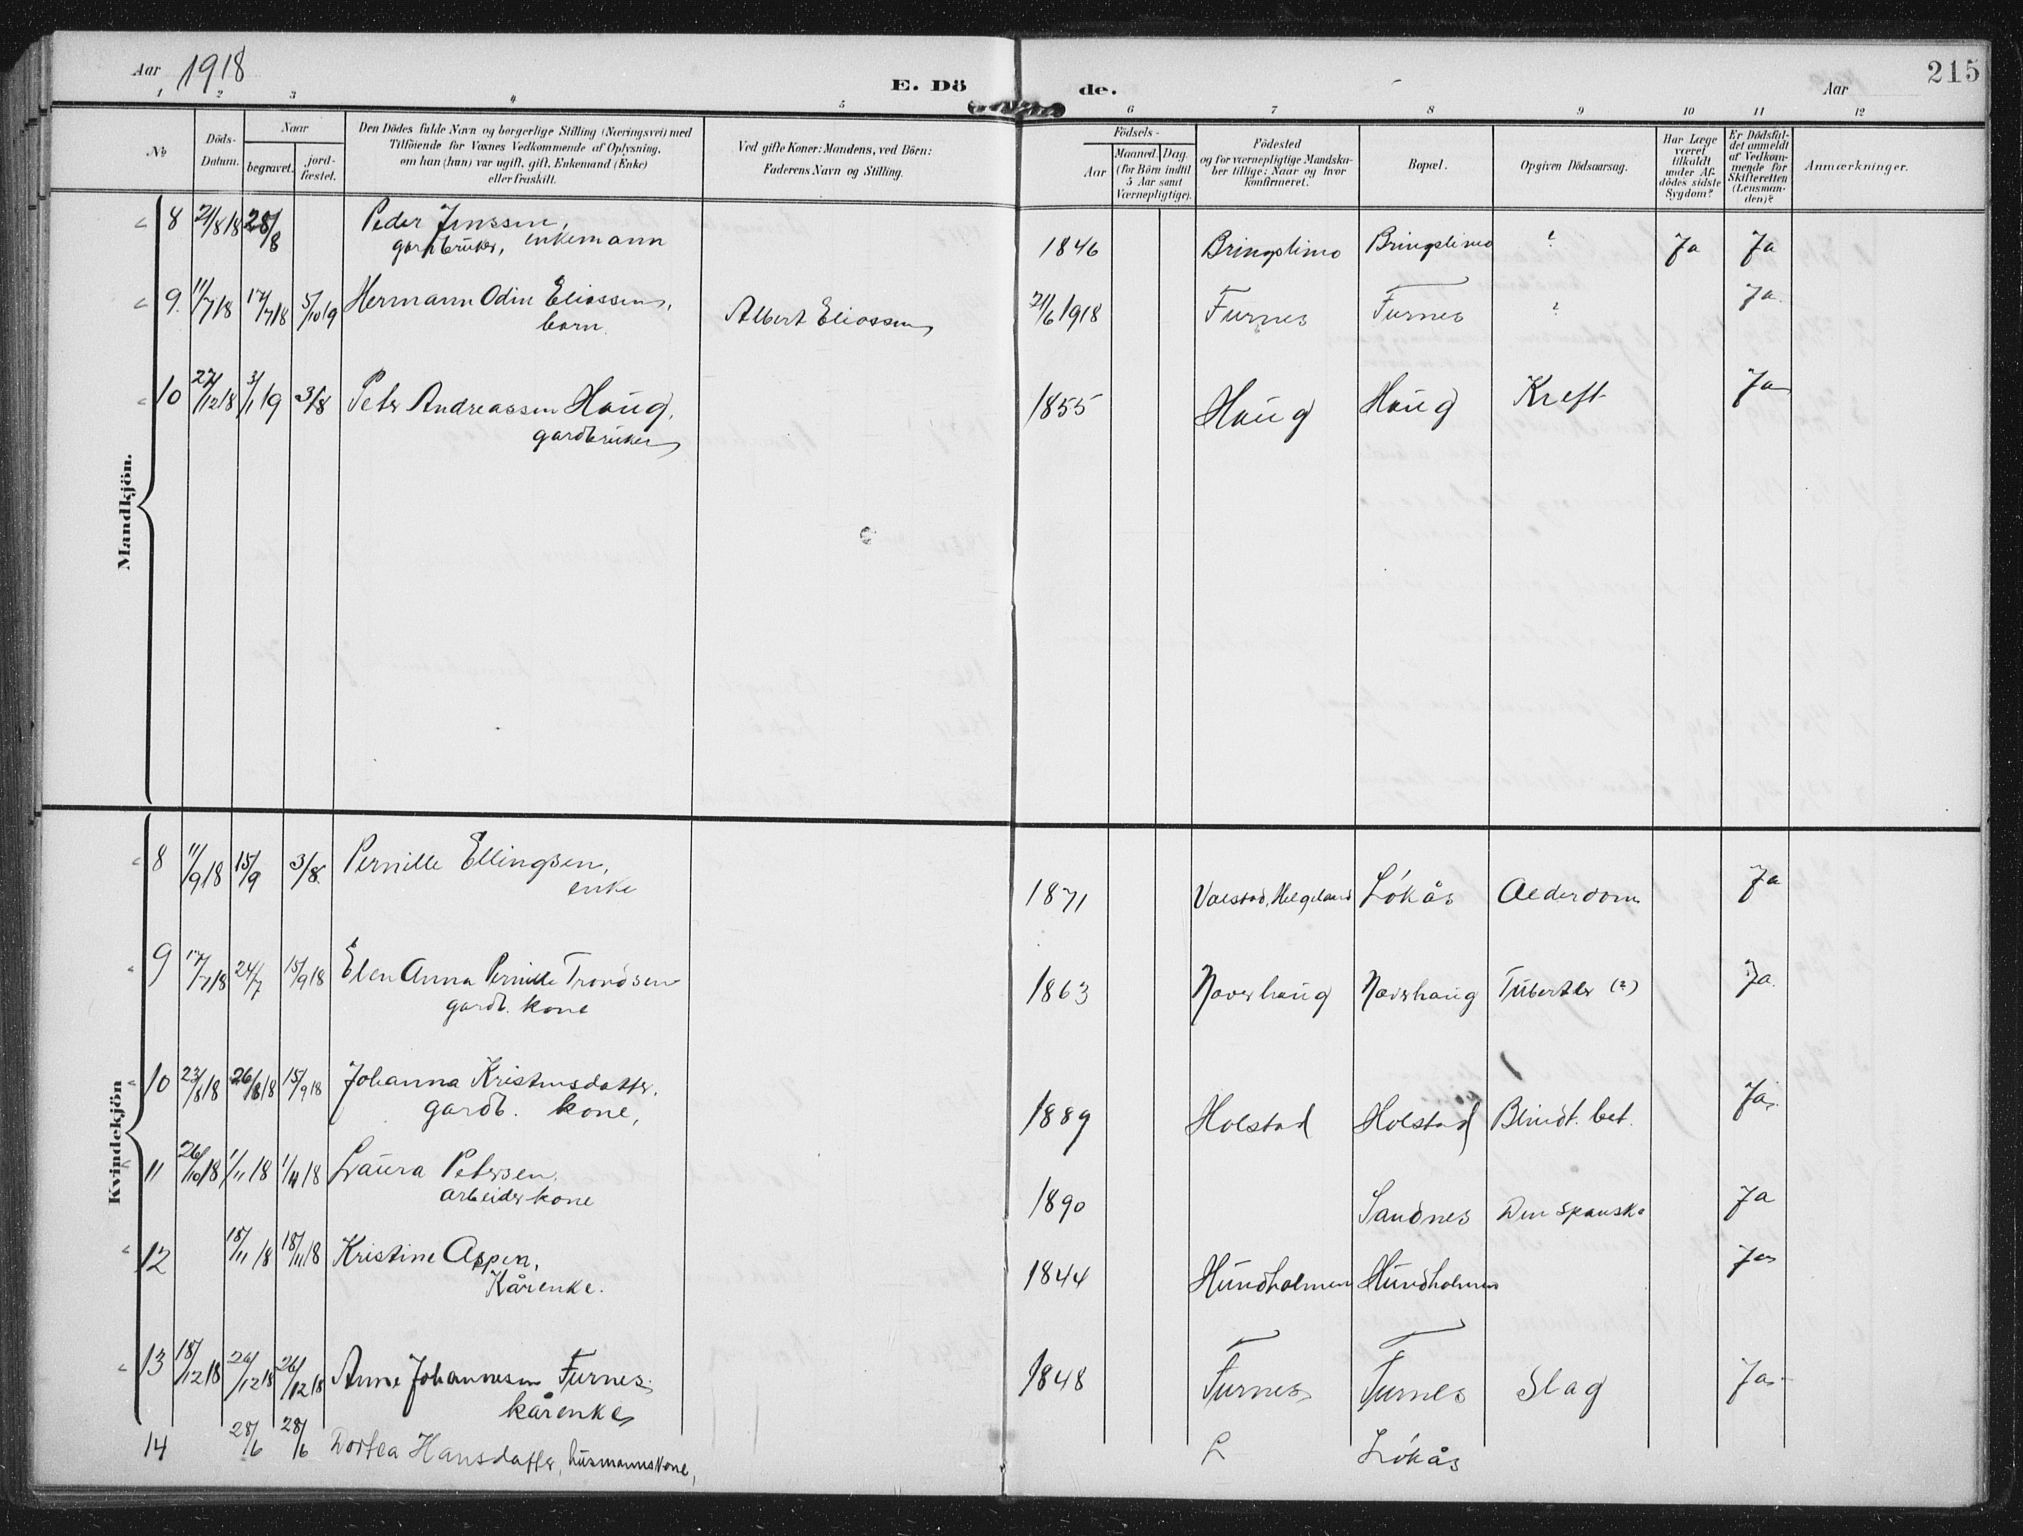 Aar 1918
E. Dö de.
Aar
215
1 2 3 4 5 6 7 8 9 10 11 12
№
Döds-Datum.
Naar
begravet.
jord-fæstet.
Den Dödes fulde Navn og borgerlige Stilling (Næringsvei) med
Tilföiende for Voxnes Vedkommende af Oplysning,
om han (hun) var ugift, gift, Enkemand (Enke)
eller fraskilt.
Ved gifte Koner: Mandens, ved Börn:
Faderens Navn og Stilling.
Födsels-
Aar
Maaned. Dag.
(for Börn indtil
5 Aar samt
Værnepligtige).
Födested
og for værnepligtige Mandska-
ber tillige: Naar og hvor
konfirmeret.
Bopæl.
Opgiven Dödsaarsag.
Har Læge
været
tilkaldt
under Af-
dödes sidste
Sygdom?
Er Dödsfal-
det anmeldt
af Vedkom-
mende for
Skifteretten
(Lensman-
den)?
Anmærkninger.
Mandkjön.
8 21/8 18 28/8 Peder Jenssen, 1846 Bringslimo Bringslimo ? Ja Ja
gardbruker, enkemann
9. 11/7 18 17/7 18 5/10 19 Hermann Odin Eliassen, Albert Eliassen 21/6 1918 Furnes Furnes ? Ja.
barn.
10 27/12 18 3/1 19 3/8 Peter Andreassen Haug, 1855 Haug Haug Kreft Ja
gardbruker
Kvindekjön
8 11/9 18 15/9 3/8. Pernille Ellingsen, 1871 Valstad, Helgeland Løkås Alderdom Ja
enke
9 17/7 18 24/7 15/9 18 Elen Anna Pernille Trondsen 1863 Naverhaug Naverhaug Tuberkler (?) Ja.
gardb. kone
10 23/8 18 26/8 18 15/9 18 Johanna Kristensdatter, 1889 Holstad Holstad Blindt. bet. Ja.
gardb. kone,
11 26/10 18 1/11 18 1/11 18 Laura Petersen, 1890 Sandnes Den spanske Ja
arbeiderkone
12 18/11 18 18/11 18 Kristine Aspen, 1844 Hundholmen Hundholmen Ja
Kårenke.
13 18/12 18 26/12 18 26/12 18 Anne Johannesen Furnes. 1848 Furnes Furnes Slag Ja
kårenke
14 28/6 28/6 Dortea Hansdatter, husmannskone, L Løkås